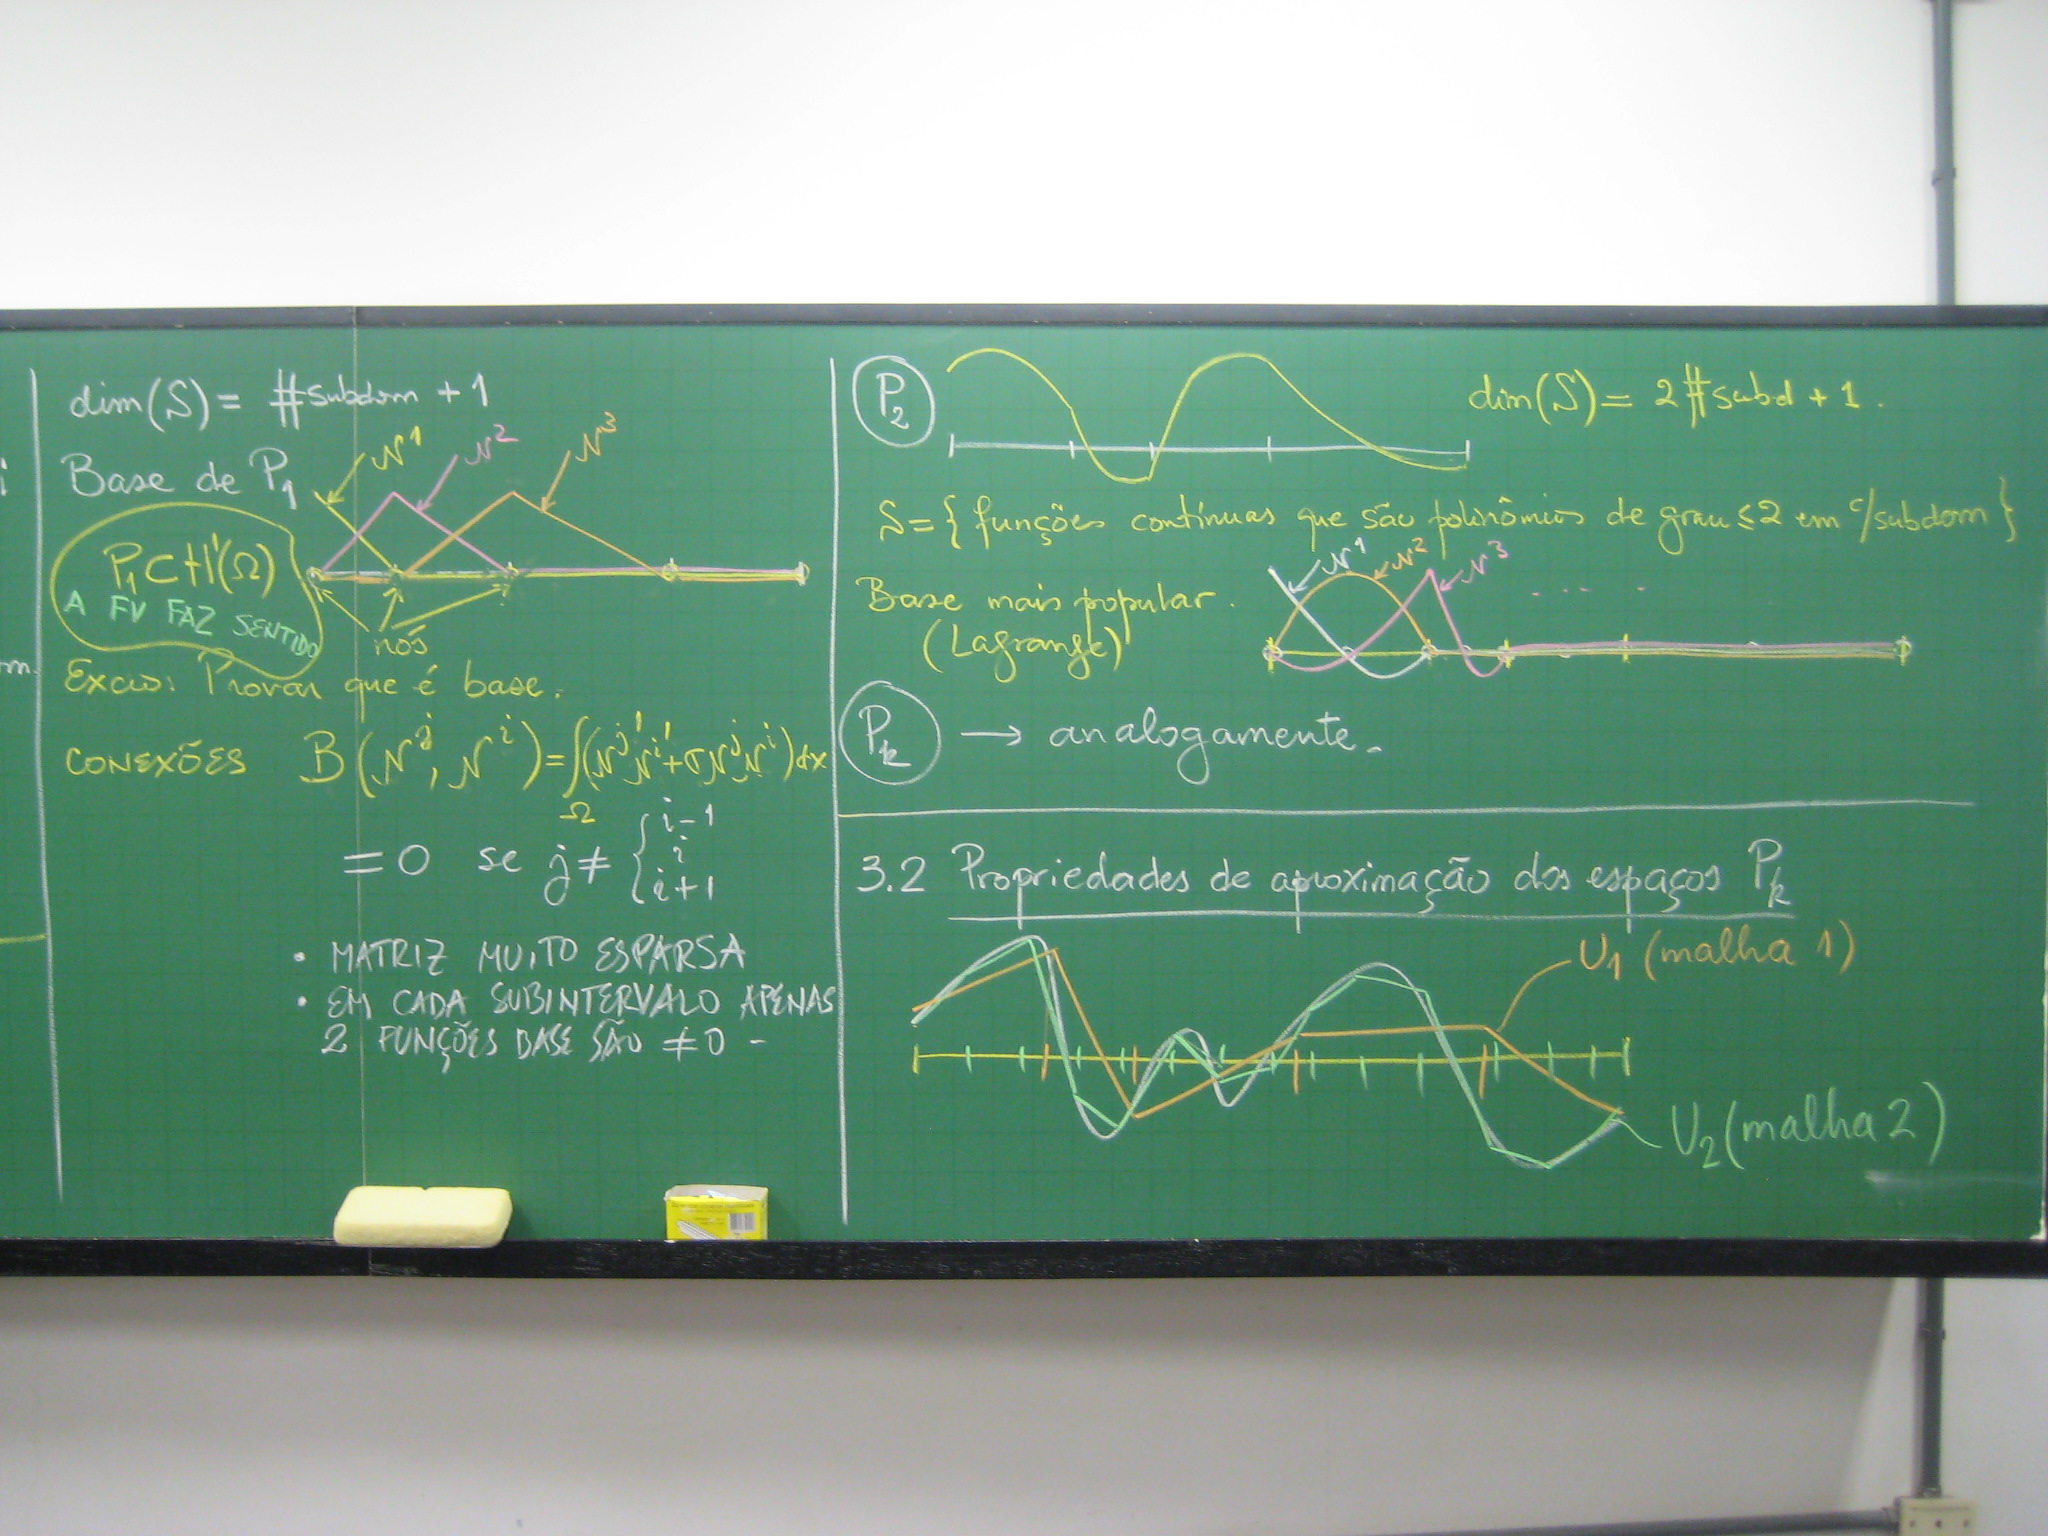 dim(S) = #subdom + 1
Base de P₁
N¹
N²
N³
P₁⊂H¹(Ω)
A FV FAZ SENTIDO
nós
Excio: Provar que é base.
CONEXÕES B(Nʲ, Nⁱ) = ∫_Ω (Nʲ' Nⁱ' + σNʲNⁱ) dx
= 0 se j ≠ { i-1
i
i+1
• MATRIZ MUITO ESPARSA
• EM CADA SUBINTERVALO APENAS
2 FUNÇÕES BASE SÃO ≠ 0 -
P₂
dim(S) = 2#subd + 1.
S = { funções contínuas que são polinômios de grau ≤ 2 em c/subdom }
Base mais popular.
(Lagrange)
N¹
N²
N³
. . . .
Pₖ → analogamente.
3.2 Propriedades de aproximação dos espaços Pₖ
U₁ (malha 1)
U₂ (malha 2)